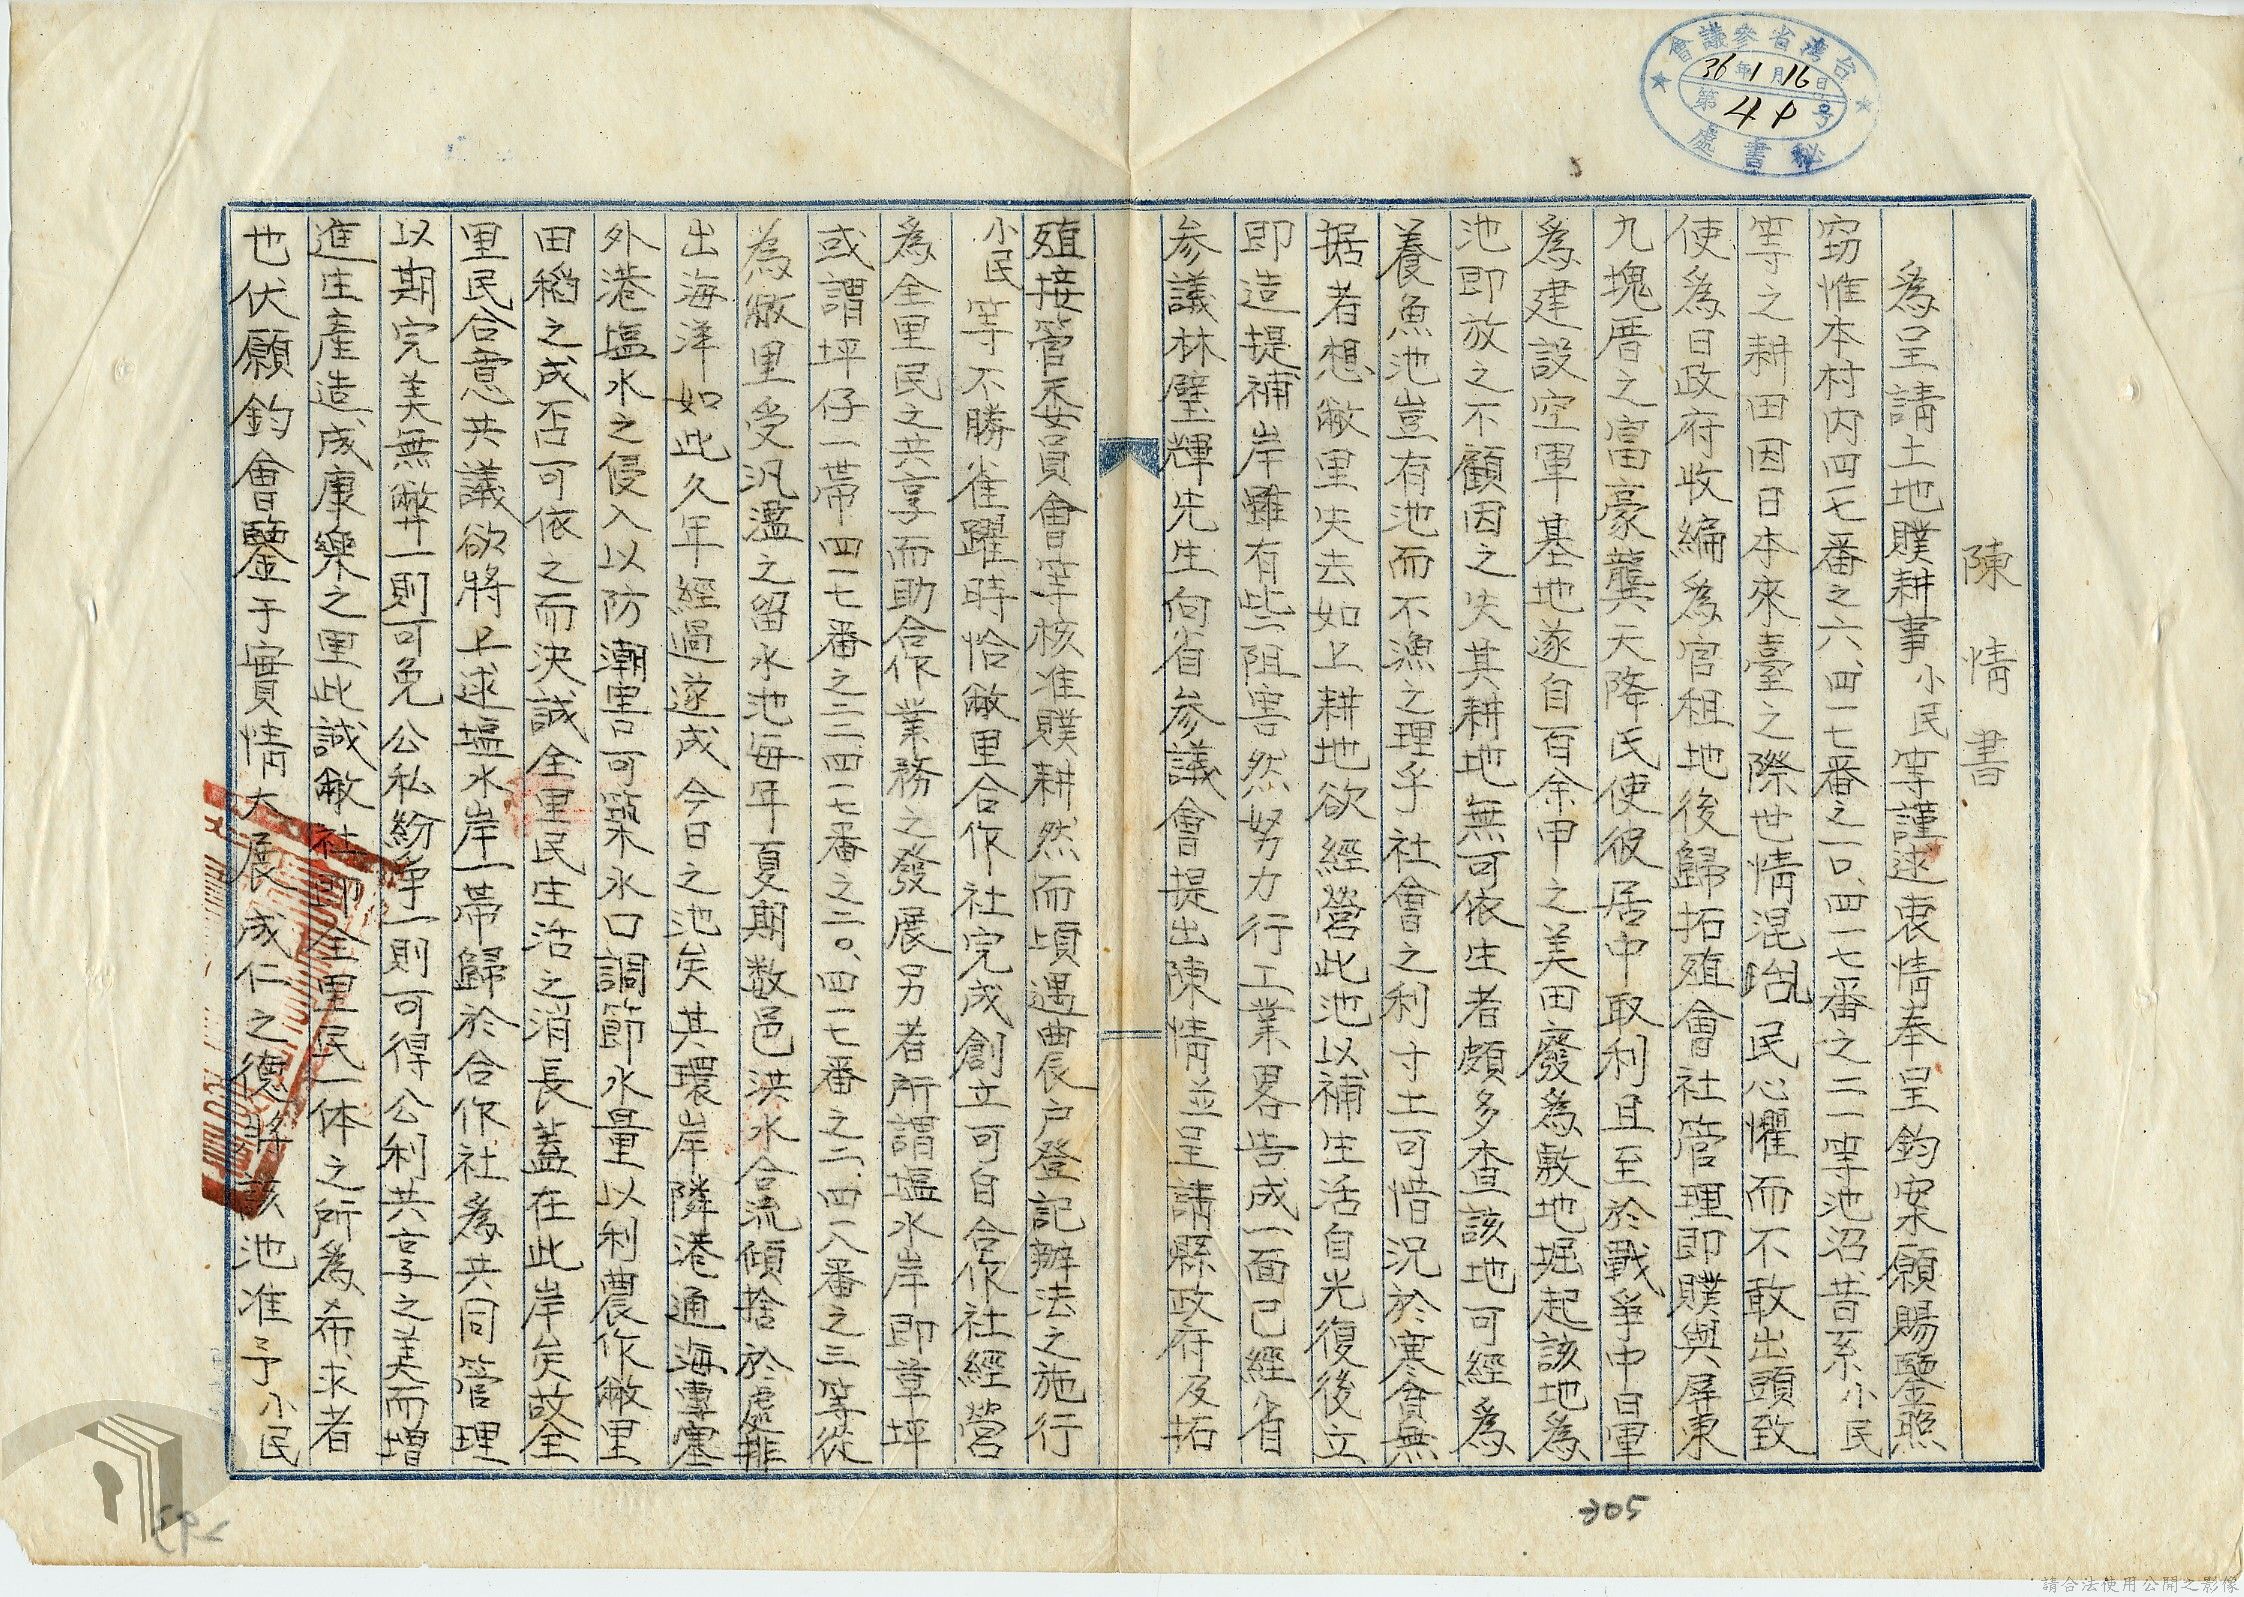 台灣省參議會
36年1月16日
第44号
秘書處
陳情書
為呈請土地贌耕事小民等謹述衷情奉呈鈞案願賜鑒照
窃惟本村内四七番之六、四一七番之一〇、四一七番之二一等池沼、昔系小民
等之耕田因日本來臺之際世情混乱民心懼而不敢出頭致
使為日政府收編為官租地後歸拓殖會社管理即贌與屏東
九塊厝之富豪龔天降氏使彼居中取利且至於戰爭中日軍
為建設空軍基地遂自百余甲之美田廢為敷地堀起該地為
池即放之不顧因之失其耕地無可依生者頗多查該地可經為
養魚池豈有池而不漁之理乎社會之利寸土可惜況於寒會無
据者想敝里失去如上耕地欲經營此池以補生活自光復後立
即造提補岸雖有些阻害然努力行工業畧告成一面已經省
参議林璧輝先生向省参議會提出陳情並呈請縣政府及拓
殖接管委員會等核准贌耕、然而頃遇農户登記辦法之施行
小民等不勝雀躍時恰敝里合作社完成創立可自合作社經營
為全里民之共享而助合作業務之發展另者所謂塭水岸即草坪
或謂坪仔一帶四一七番之二二、四一七番之二〇、四一七番之二、四一八番之三等從
為敝里受汎濫之留水池每年夏期数邑洪水合流傾捨於處排
出海洋如此久年經過遂成今日之池矣其環岸隣港通海専塞
外港塭水之侵入以防潮害可築水口調節水量以利農作敝里
田稻之成否可依之而決誠全里民生活之消長蓋在此岸矣故全
里民合意共議欲將上述塭水岸一帶歸於合作社為共同管理
以期完美無弊一則可免公私紛争一則可得公利共享之美而增
進生產造成康樂之里此誠敝社即全里民一体之所為希求者
也伏願鈞會鑒于實情大展成仁之德將該池准予小民
305
請合法使用公開之影像